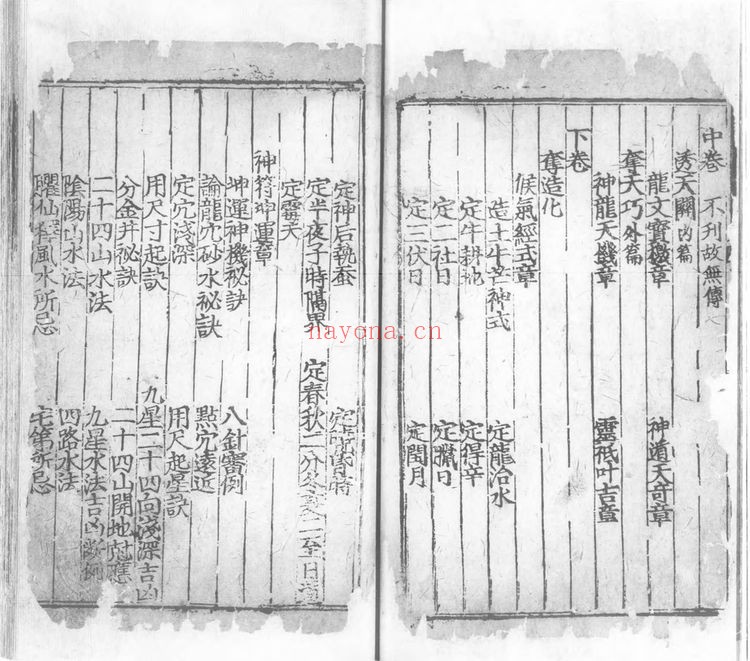 中卷　不刋故無傳
透天關內篇
龍文寶檄章　神道天竒章
奪天巧外篇
神龍天機章　靈祇叶吉章
下卷
奪造化
候氣經式章
造土牛芒神式　定龍治水
定牛耕地　定得辛
定二社日　定臘日
定三伏日　定閏月
定神后執蚕
定半夜子時陽界　定春秋二分冬夏二至日
定霉天
神符坤運章
坤運神機祕訣　八針審例
論龍穴砂水祕訣　點穴遠近
定穴淺深　用尺起星訣
用尺寸起訣　九星二十四向淺深吉凶
分金井祕訣　二十四山開地應
二十四山水法　九星水法吉凶斷例
陰陽山水法　四路水法
臞仙擇風水所忌　宅第所忌
hayona.cn